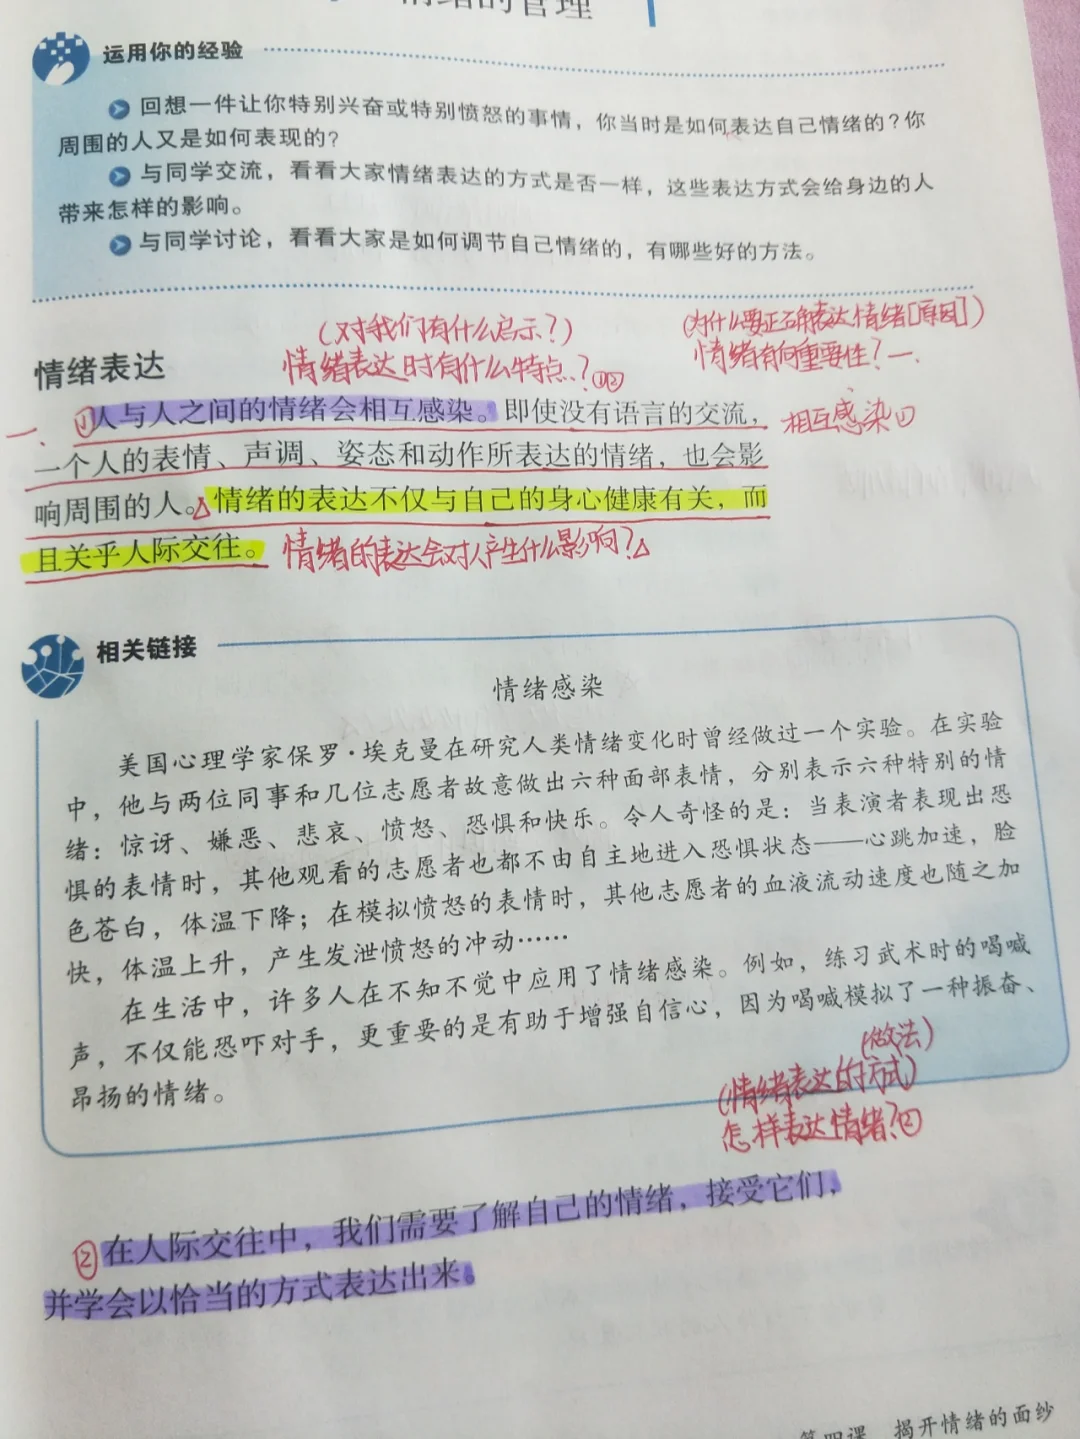 情绪的管理
运用你的经验
回想一件让你特别兴奋或特别愤怒的事情，你当时是如何表达自己情绪的？你
周围的人又是如何表现的？
与同学交流，看看大家情绪表达的方式是否一样，这些表达方式会给身边的人
带来怎样的影响。
与同学讨论，看看大家是如何调节自己情绪的，有哪些好的方法。
（对我们有什么启示？）
（为什么要正确表达情绪[原因]）
情绪表达
情绪表达时有什么特点？①②
情绪有何重要性？一、
一、
①人与人之间的情绪会相互感染。即使没有语言的交流，
相互感染①
一个人的表情、声调、姿态和动作所表达的情绪，也会影
响周围的人。△情绪的表达不仅与自己的身心健康有关，而
且关乎人际交往。
情绪的表达会对人产生什么影响？△
相关链接
情绪感染
美国心理学家保罗·埃克曼在研究人类情绪变化时曾经做过一个实验。在实验
中，他与两位同事和几位志愿者故意做出六种面部表情，分别表示六种特别的情
绪：惊讶、嫌恶、悲哀、愤怒、恐惧和快乐。令人奇怪的是：当表演者表现出恐
惧的表情时，其他观看的志愿者也都不由自主地进入恐惧状态——心跳加速，脸
色苍白，体温下降；在模拟愤怒的表情时，其他志愿者的血液流动速度也随之加
快，体温上升，产生发泄愤怒的冲动……
在生活中，许多人在不知不觉中应用了情绪感染。例如，练习武术时的喝喊
声，不仅能恐吓对手，更重要的是有助于增强自信心，因为喝喊模拟了一种振奋、
昂扬的情绪。
（做法）
（情绪表达的方式）
怎样表达情绪？②
②在人际交往中，我们需要了解自己的情绪，接受它们，
并学会以恰当的方式表达出来。
第四课 揭开情绪的面纱